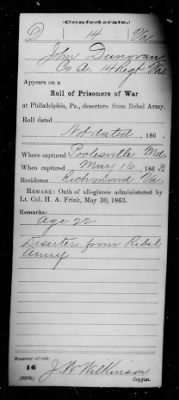 Confederate.
D 14 Va.
John Dungvan
Co A. 14 Regt Va.
Appears on a
Roll of Prisoners of War
at Philadelphia, Pa., deserters from Rebel Army.
Roll dated
Not dated, 186 .
Where captured Poolesville Md
When captured May 16, 1863
Residence Richmond Va.
REMARK: Oath of allegiance administered by
Lt. Col. H. A. Frink, May 30, 1863.
Remarks:
Age 22
Diserter from Rebel
Army
Number of roll:
16
J. W. Wilkinson
Copyist.